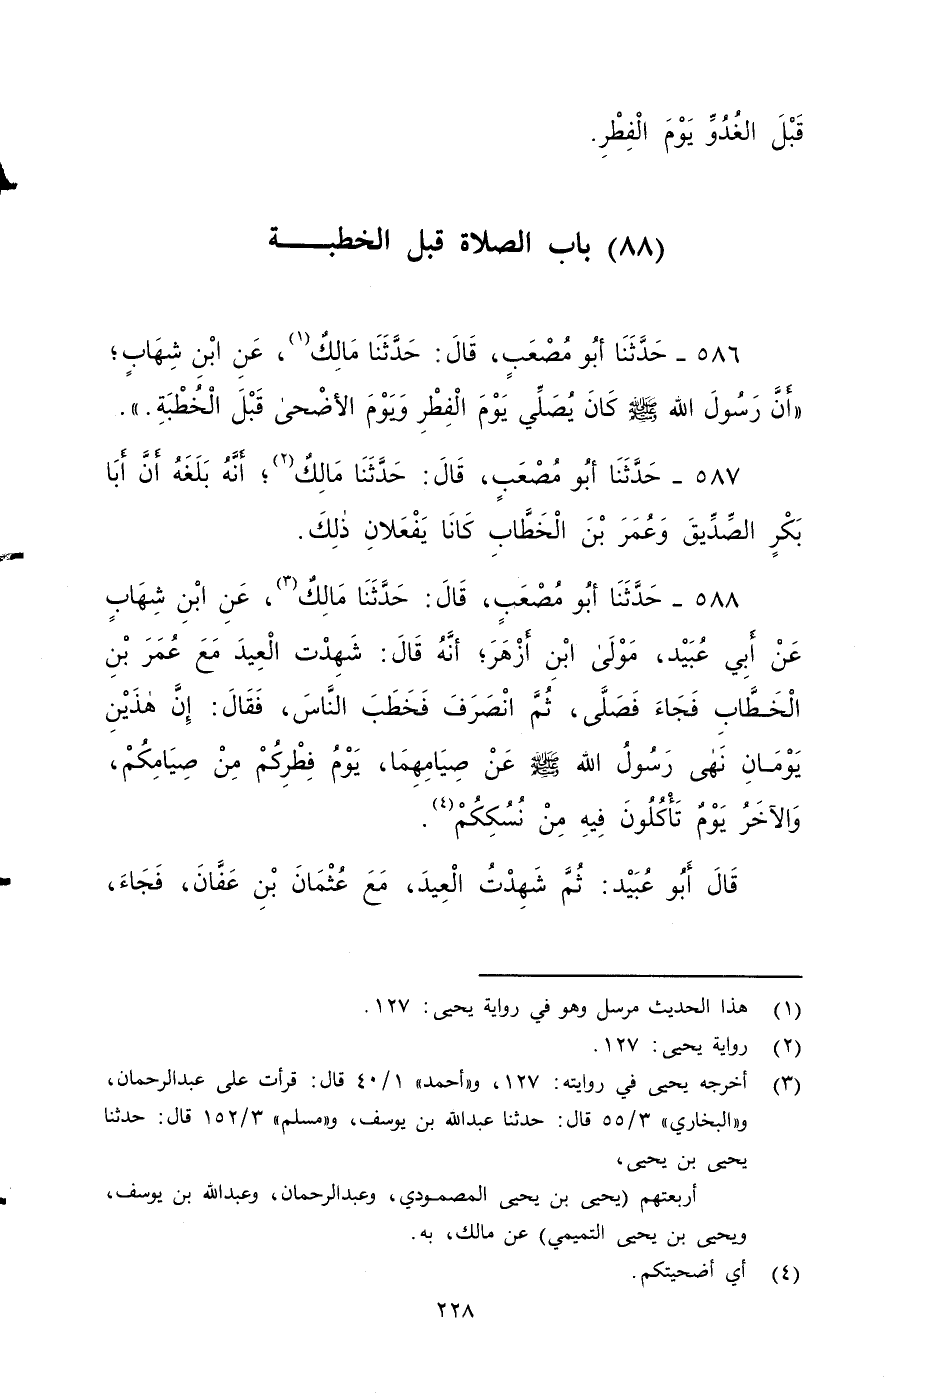 قَبْلَ الغُدُوِّ يَوْمَ الْفِطْرِ.
(٨٨) باب الصلاة قبل الخطبـــــة
٥٨٦ ـ حَدَّثَنَا أبُو مُصْعَبٍ، قَالَ: حَدَّثَنَا مَالِكٌ(١)، عَنِ ابْنِ شِهَابٍ؛
«أَنَّ رَسُولَ الله ﷺ كَانَ يُصَلِّي يَوْمَ الْفِطْرِ وَيَوْمَ الأضْحىٰ قَبْلَ الْخُطْبَةِ.».
٥٨٧ ـ حَدَّثَنَا أبُو مُصْعَبٍ، قَالَ: حَدَّثَنَا مَالِكٌ(٢)؛ أَنَّهُ بَلَغَهُ أَنَّ أَبَا
بَكْرٍ الصِّدِّيقَ وَعُمَرَ بْنَ الْخَطَّابِ كَانَا يَفْعَلانِ ذٰلِكَ.
٥٨٨ ـ حَدَّثَنَا أبُو مُصْعَبٍ، قَالَ: حَدَّثَنَا مَالِكٌ(٣)، عَنِ ابْنِ شِهَابٍ
عَنْ أَبِي عُبَيْد، مَوْلَىٰ ابْنِ أَزْهَرَ؛ أنَّهُ قَالَ: شَهِدْت الْعِيدَ مَعَ عُمَرَ بْنِ
الْخَـطَّابِ فَجَاءَ فَصَلَّى، ثُمَّ انْصَرَفَ فَخَطَبَ النَّاسَ، فَقَالَ: إِنَّ هٰذَيْنِ
يَوْمَـانِ نَهٰى رَسُولُ الله ﷺ عَنْ صِيَامِهِمَا، يَوْمُ فِطْرِكُمْ مِنْ صِيَامِكُمْ،
وَالآخَرُ يَوْمٌ تَأْكُلُونَ فِيهِ مِنْ نُسُكِكُمْ(٤).
قَالَ أَبُو عُبَيْد: ثُمَّ شَهِدْتُ الْعِيدَ، مَعَ عُثْمَانَ بْنِ عَفَّانَ، فَجَاءَ،
(١) هذا الحديث مرسل وهو في رواية يحيى: ١٢٧.
(٢) رواية يحيى: ١٢٧.
(٣) أخرجه يحيى في روايته: ١٢٧، و«أحمد» ٤٠/١ قال: قرأت على عبدالرحمان،
و«البخاري» ٥٥/٣ قال: حدثنا عبدالله بن يوسف، و«مسلم» ١٥٢/٣ قال: حدثنا
يحيى بن يحيى،
أربعتهم (يحيى بن يحيى المصمـودي، وعبدالرحمان، وعبدالله بن يوسف،
ويحيى بن يحيى التميمي) عن مالك، به.
(٤) أي أضحيتكم.
٢٢٨